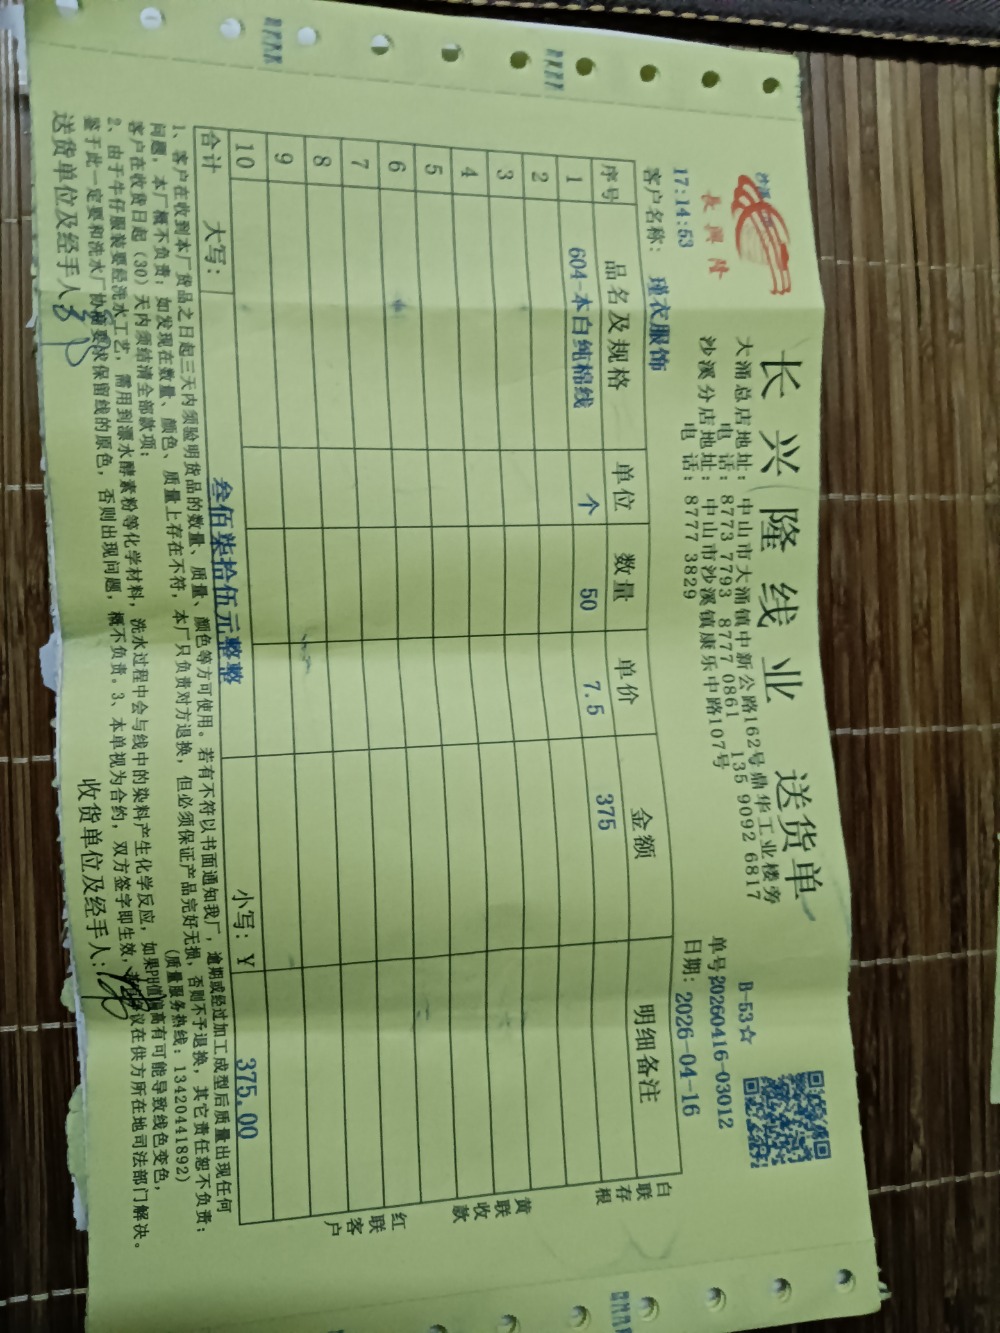 長興隆
17:14:53
长兴隆线业 送货单
大涌总店地址：中山市大涌镇中新公路162号鼎华工业楼旁
电话：8773 7793 8777 0861 135 9092 6817
沙溪分店地址：中山市沙溪镇康乐中路107号
电话：8777 3829
B-53☆
单号20260416-03012
客户名称：瑾衣服饰 日期：2026-04-16
序号 品名及规格 单位 数量 单价 金额 明细备注
1 604-本白纯棉线 个 50 7.5 375
2
3
4
5
6
7
8
9
10
合计 大写：叁佰柒拾伍元整整 小写：Y 375.00
白联存根
黄联收款
红联客户
1、客户在收到本厂货品之日起三天内须验明货品的数量、质量、颜色等方可使用。若有不符以书面通知我厂，逾期或经过加工成型后质量出现任何
问题，本厂概不负责；如发现在数量、颜色、质量上存在不符，本厂只负责对方退换，但必须保证产品完好无损，否则不予退换，其它责任恕不负责；
客户在收货日起（30）天内须结清全部款项； （质量服务热线：13420441892）
2、由于牛仔服装要经洗水工艺，需用到漂水酵素粉等化学材料，洗水过程中会与线中的染料产生化学反应，如果PH值偏高有可能导致线色变色，
鉴于此一定要和洗水厂协商要求保留线的原色，否则出现问题，概不负责。3、本单视为合约，双方签字即生效，议在供方所在地司法部门解决。
送货单位及经手人 收货单位及经手人：